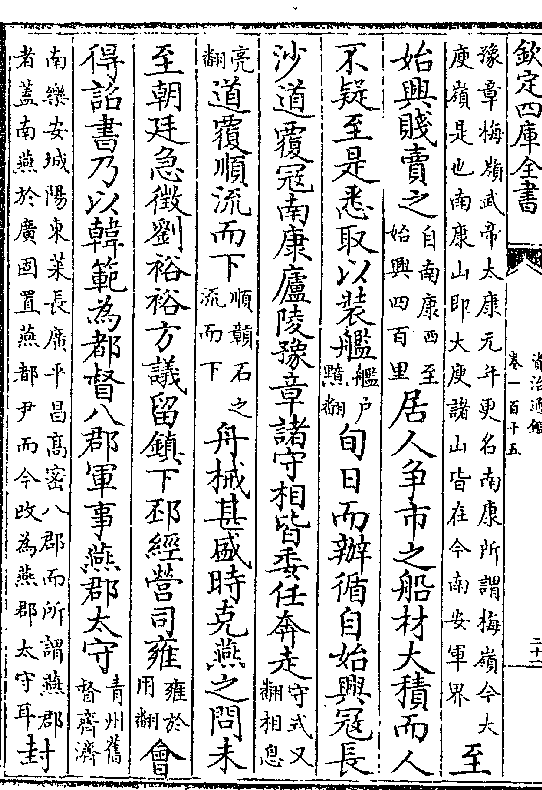 欽定四庫全書
資治通鑑
卷一百十五
二十二
豫章梅嶺武帝太康元年更名南康所謂梅嶺今大
庾嶺是也南康山即大庾諸山皆在今南安軍界
至
始興賤賣之
自南康西至
始興四百里
居人争市之船材大積而人
不疑至是悉取以装艦
艦户
黯翻
旬日而辦循自始興冦長
沙道覆冦南康廬陵豫章諸守相皆委任奔走
守式又
翻相息
亮
翻
道覆順流而下
順贛石之
流而下
舟械甚盛時克燕之問未
至朝廷急徴劉裕裕方議留鎮下邳經營司雍
雍於
用翻
會
得詔書乃以韓範為都督八郡軍事燕郡太守
青州舊
督齊濟
南樂安城陽東萊長廣平昌高密八郡而所謂燕郡
者蓋南燕於廣固置燕都尹而今改為燕郡太守耳
封